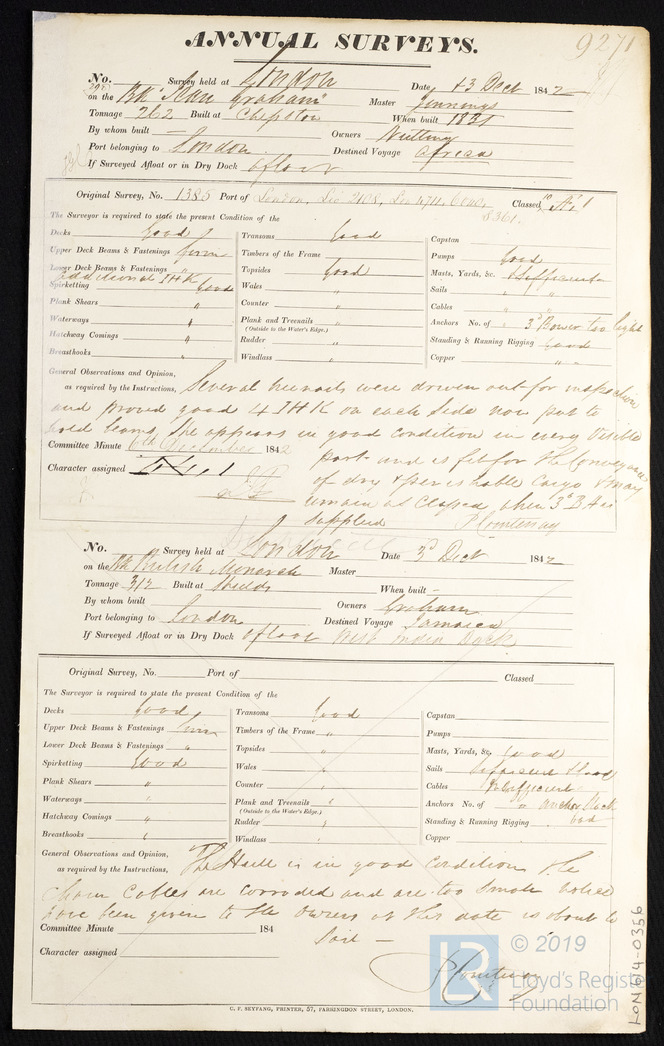 ANNUAL SURVEYS.
9271
No. Survey held at London Date 3 Dect 1842
on the Bk "Jean Graham" Master Jennings
Tonnage 262 Built at Chepstow When built 1821
By whom built — Owners Nutting
Port belonging to London Destined Voyage Africa
If Surveyed Afloat or in Dry Dock afloat
Original Survey, No. 1385 Port of London, Classed A 1
8361
The Surveyor is required to state the present Condition of the
Decks Good Transoms Good Capstan
Upper Deck Beams & Fastenings Firm Timbers of the Frame Pumps Good
Lower Deck Beams & Fastenings " Topsides Good Masts, Yards, &c. Sufficient
additional IHK
Spirketting Good Wales " Sails "
Plank Shears " Counter " Cables "
Waterways " Plank and Treenails " Anchors No. of 3d Bower too light
(Outside to the Water's Edge.)
Hatchway Comings " Rudder " Standing & Running Rigging Good
Breasthooks " Windlass " Copper "
General Observations and Opinion,
as required by the Instructions, Several treenails were driven out for inspection
and proved good 4 IHK on each side now put to
hold beams, She appears in good condition in every visible
Committee Minute 6th December 1842
part and is fit for the Conveyance
Character assigned
of dry & perishable Cargo & may
remain as Classed, when 3d B A is
supplied P Courtenay
No. Survey held at London Date 3d Dect 1842
on the Bk British Monarch Master
Tonnage 312 Built at Shields When built —
By whom built Owners Graham
Port belonging to London Destined Voyage Jamaica
If Surveyed Afloat or in Dry Dock afloat West India Dock
Original Survey, No. Port of Classed
The Surveyor is required to state the present Condition of the
Decks Good Transoms Good Capstan
Upper Deck Beams & Fastenings Firm Timbers of the Frame " Pumps
Lower Deck Beams & Fastenings " Topsides " Masts, Yards, &c. Good
Spirketting Good Wales " Sails Sufficient & Good
Plank Shears " Counter " Cables Insufficient
Waterways " Plank and Treenails " Anchors No. of " anchor Stock
(Outside to the Water's Edge.)
Hatchway Comings " Rudder " Standing & Running Rigging bad
Breasthooks " Windlass " Copper
General Observations and Opinion,
as required by the Instructions, The Hull is in good condition the
Chain Cables are corroded and are too small notice
have been given to the owners of this date is about to
Committee Minute 184
Sail —
Character assigned
P Courtenay
C. F. SEYFANG, PRINTER, 57, FARRINGDON STREET, LONDON.
LON 614-0356
LR © 2019
Lloyd's Register
Foundation